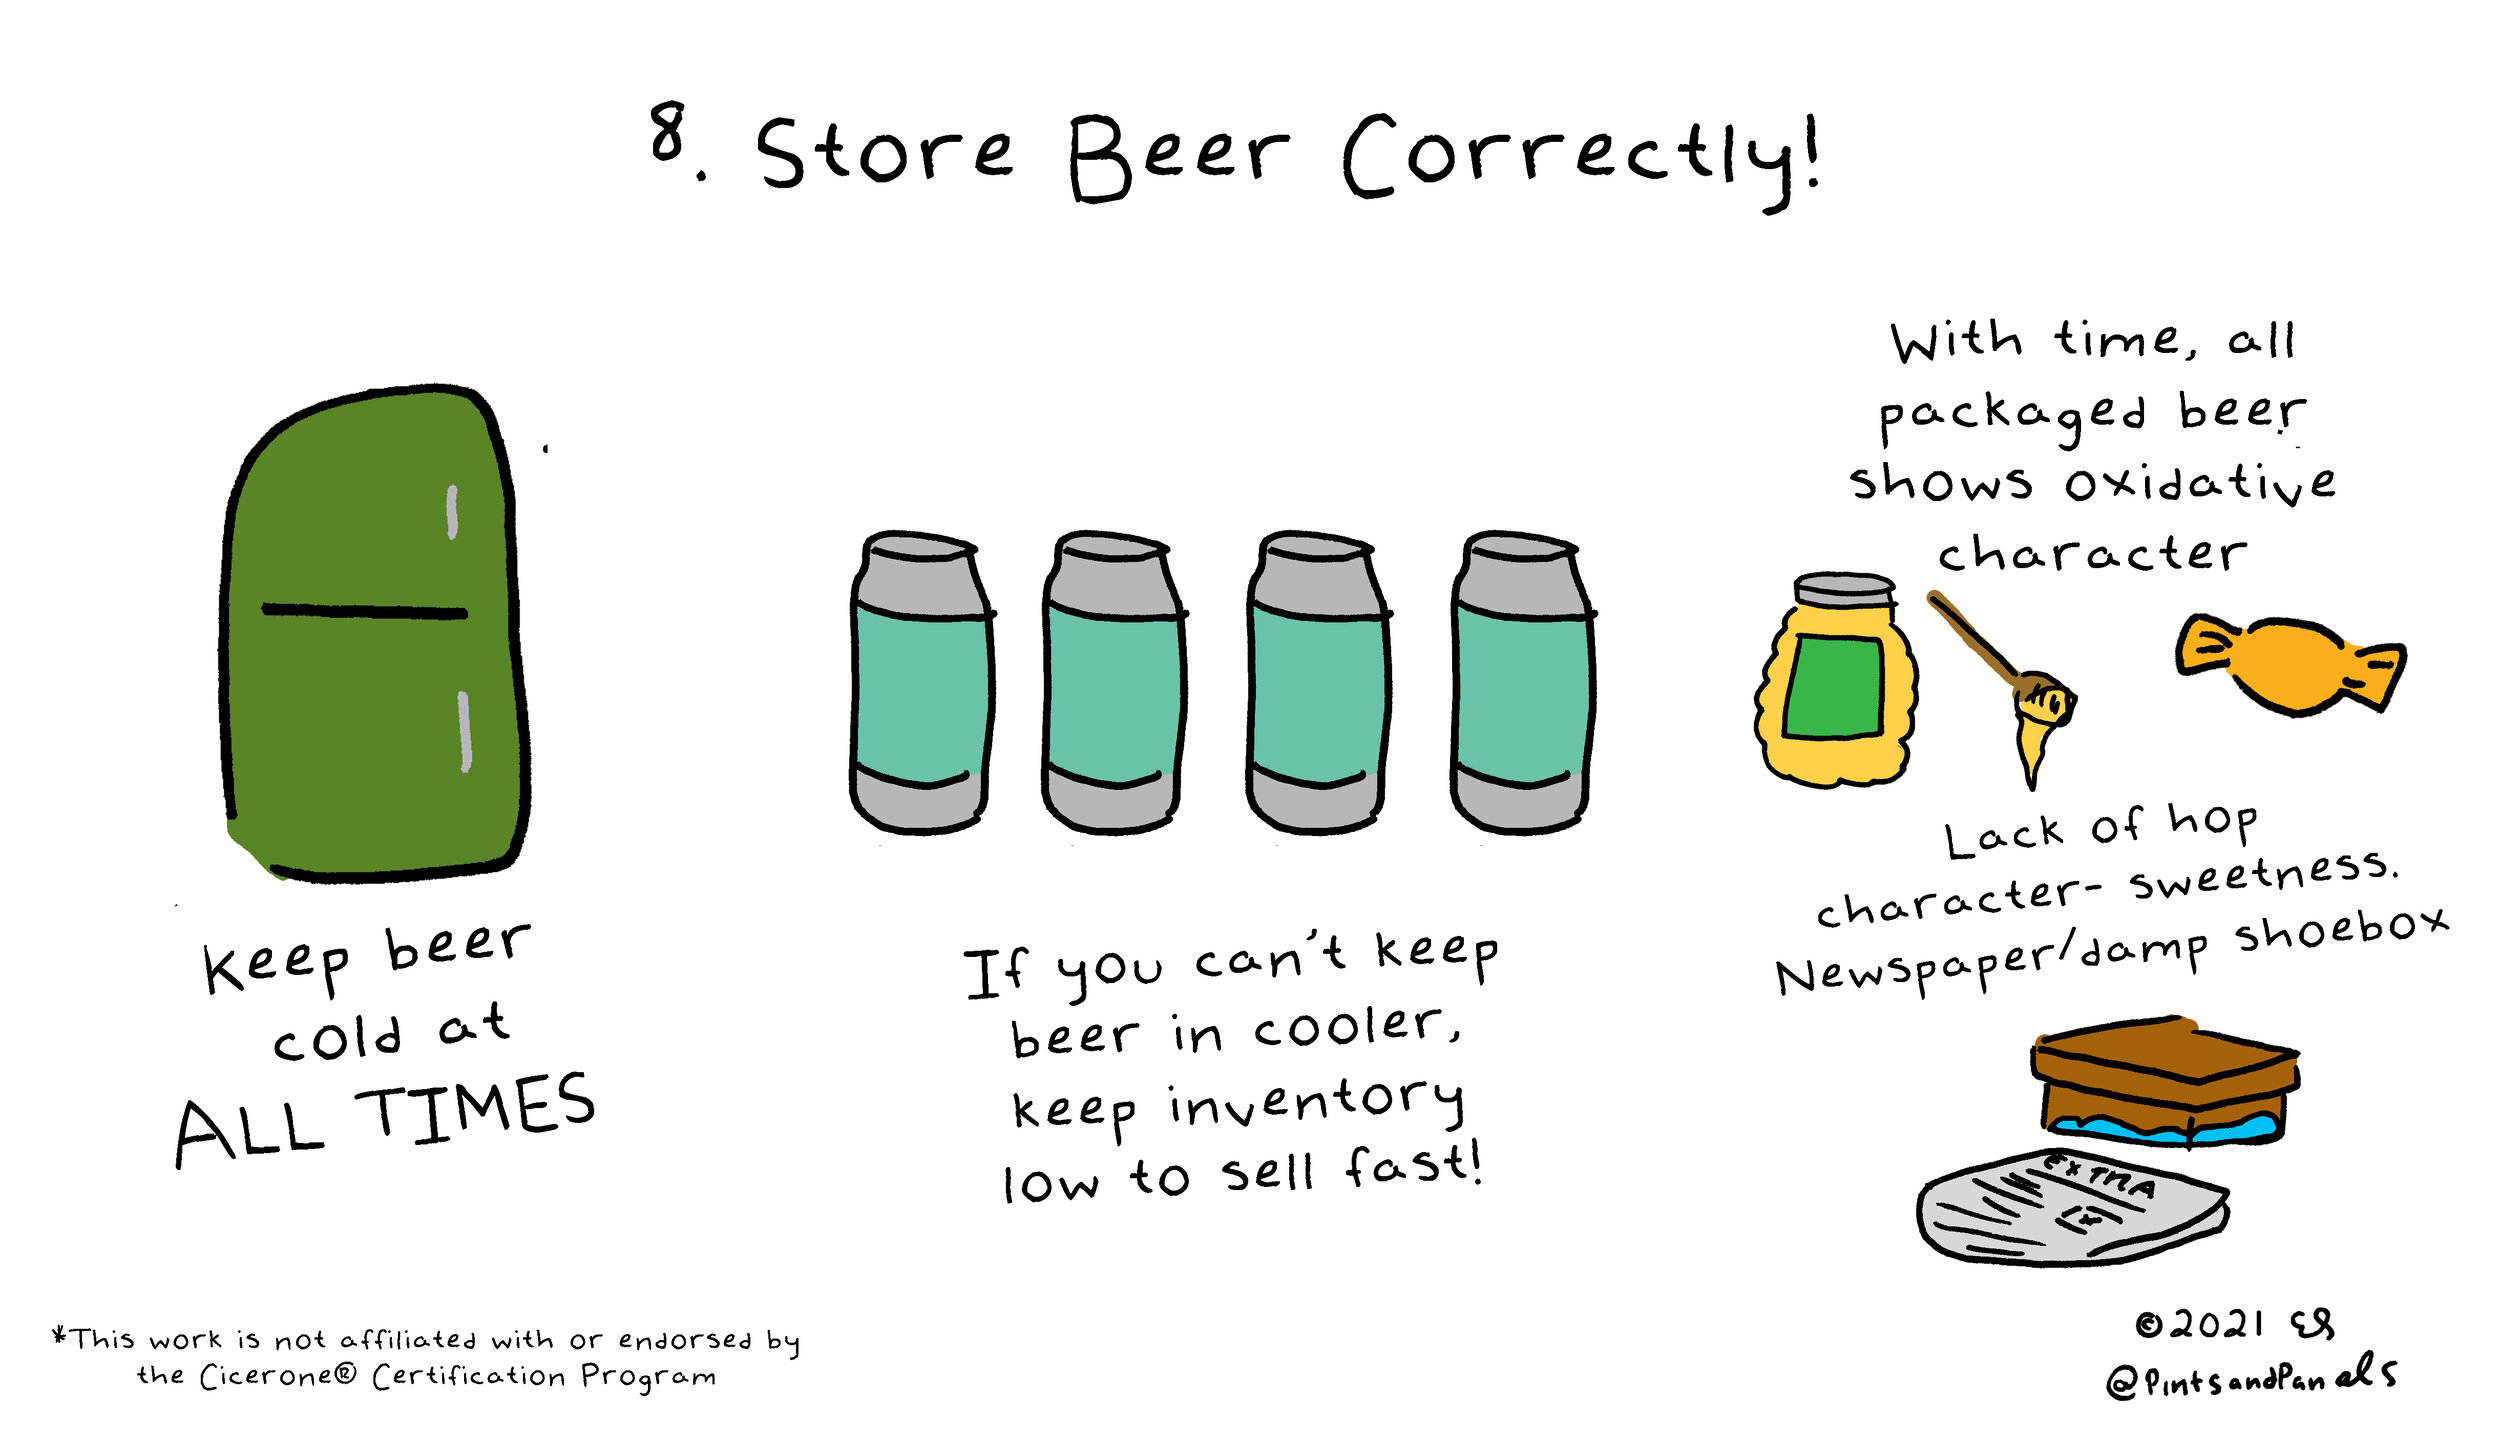 8. Store Beer Correctly!
Keep beer
cold at
ALL TIMES
If you can't keep
beer in cooler,
keep inventory
low to sell fast!
With time, all
packaged beer
shows oxidative
character
Lack of hop
character- sweetness.
Newspaper/damp shoebox
EXTRA
*This work is not affiliated with or endorsed by
the Cicerone® Certification Program
©2021 ES
@PintsandPanels